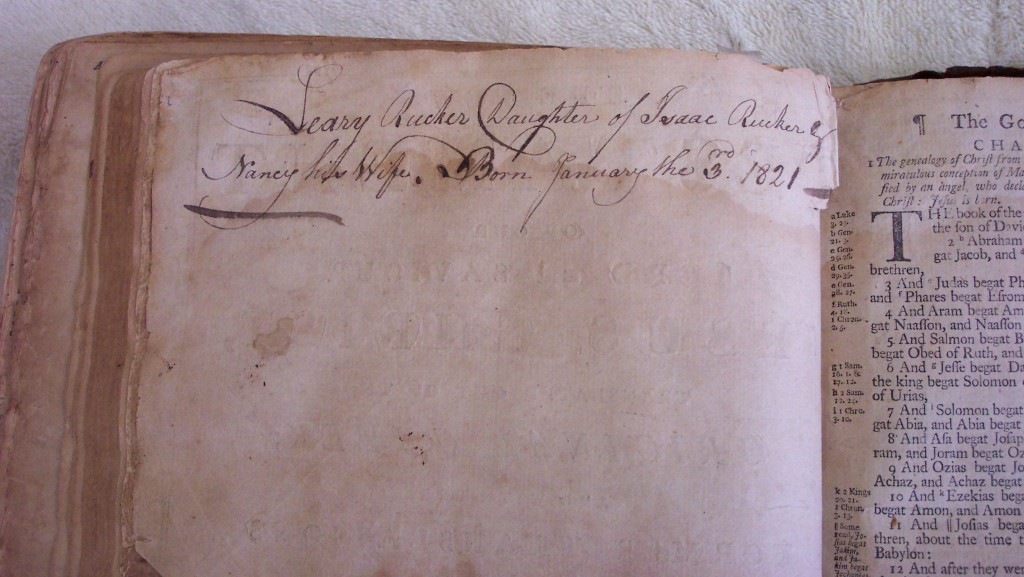 Leary Rucker Daughter of Isaac Rucker &
Nancy his Wife. Born January the 3.rd 1821
¶ The Go
CHA
1 The genealogy of Christ from
miraculous conception of Ma
fied by an angel, who decla
Christ: Jesus is born.
THE book of the
the son of David
2 b Abraham
gat Jacob, and
brethren,
3 And Judas begat Ph
and f Phares begat Esrom
4 And Aram begat Am
gat Naasson, and Naasson
5 And Salmon begat B
begat Obed of Ruth, and
6 And g Jesse begat Da
the king begat Solomon
of Urias,
7 And i Solomon begat
gat Abia, and Abia begat
8 And Asa begat Josap
ram, and Joram begat Oz
9 And Ozias begat Jo
Achaz, and Achaz begat
10 And k Ezekias bega
begat Amon, and Amon
11 And ‖ Josias begat
thren, about the time t
Babylon:
12 And after they were
a Luke
b Gen.
c Gen.
d Gen.
e Gen.
f Ruth.
1 Chron.
g 1 Sam.
h 2 Sam.
i 1 Chro.
3. 10.
k 2 Kings
20. 21.
1 Chron.
3. 13.
‖ Some